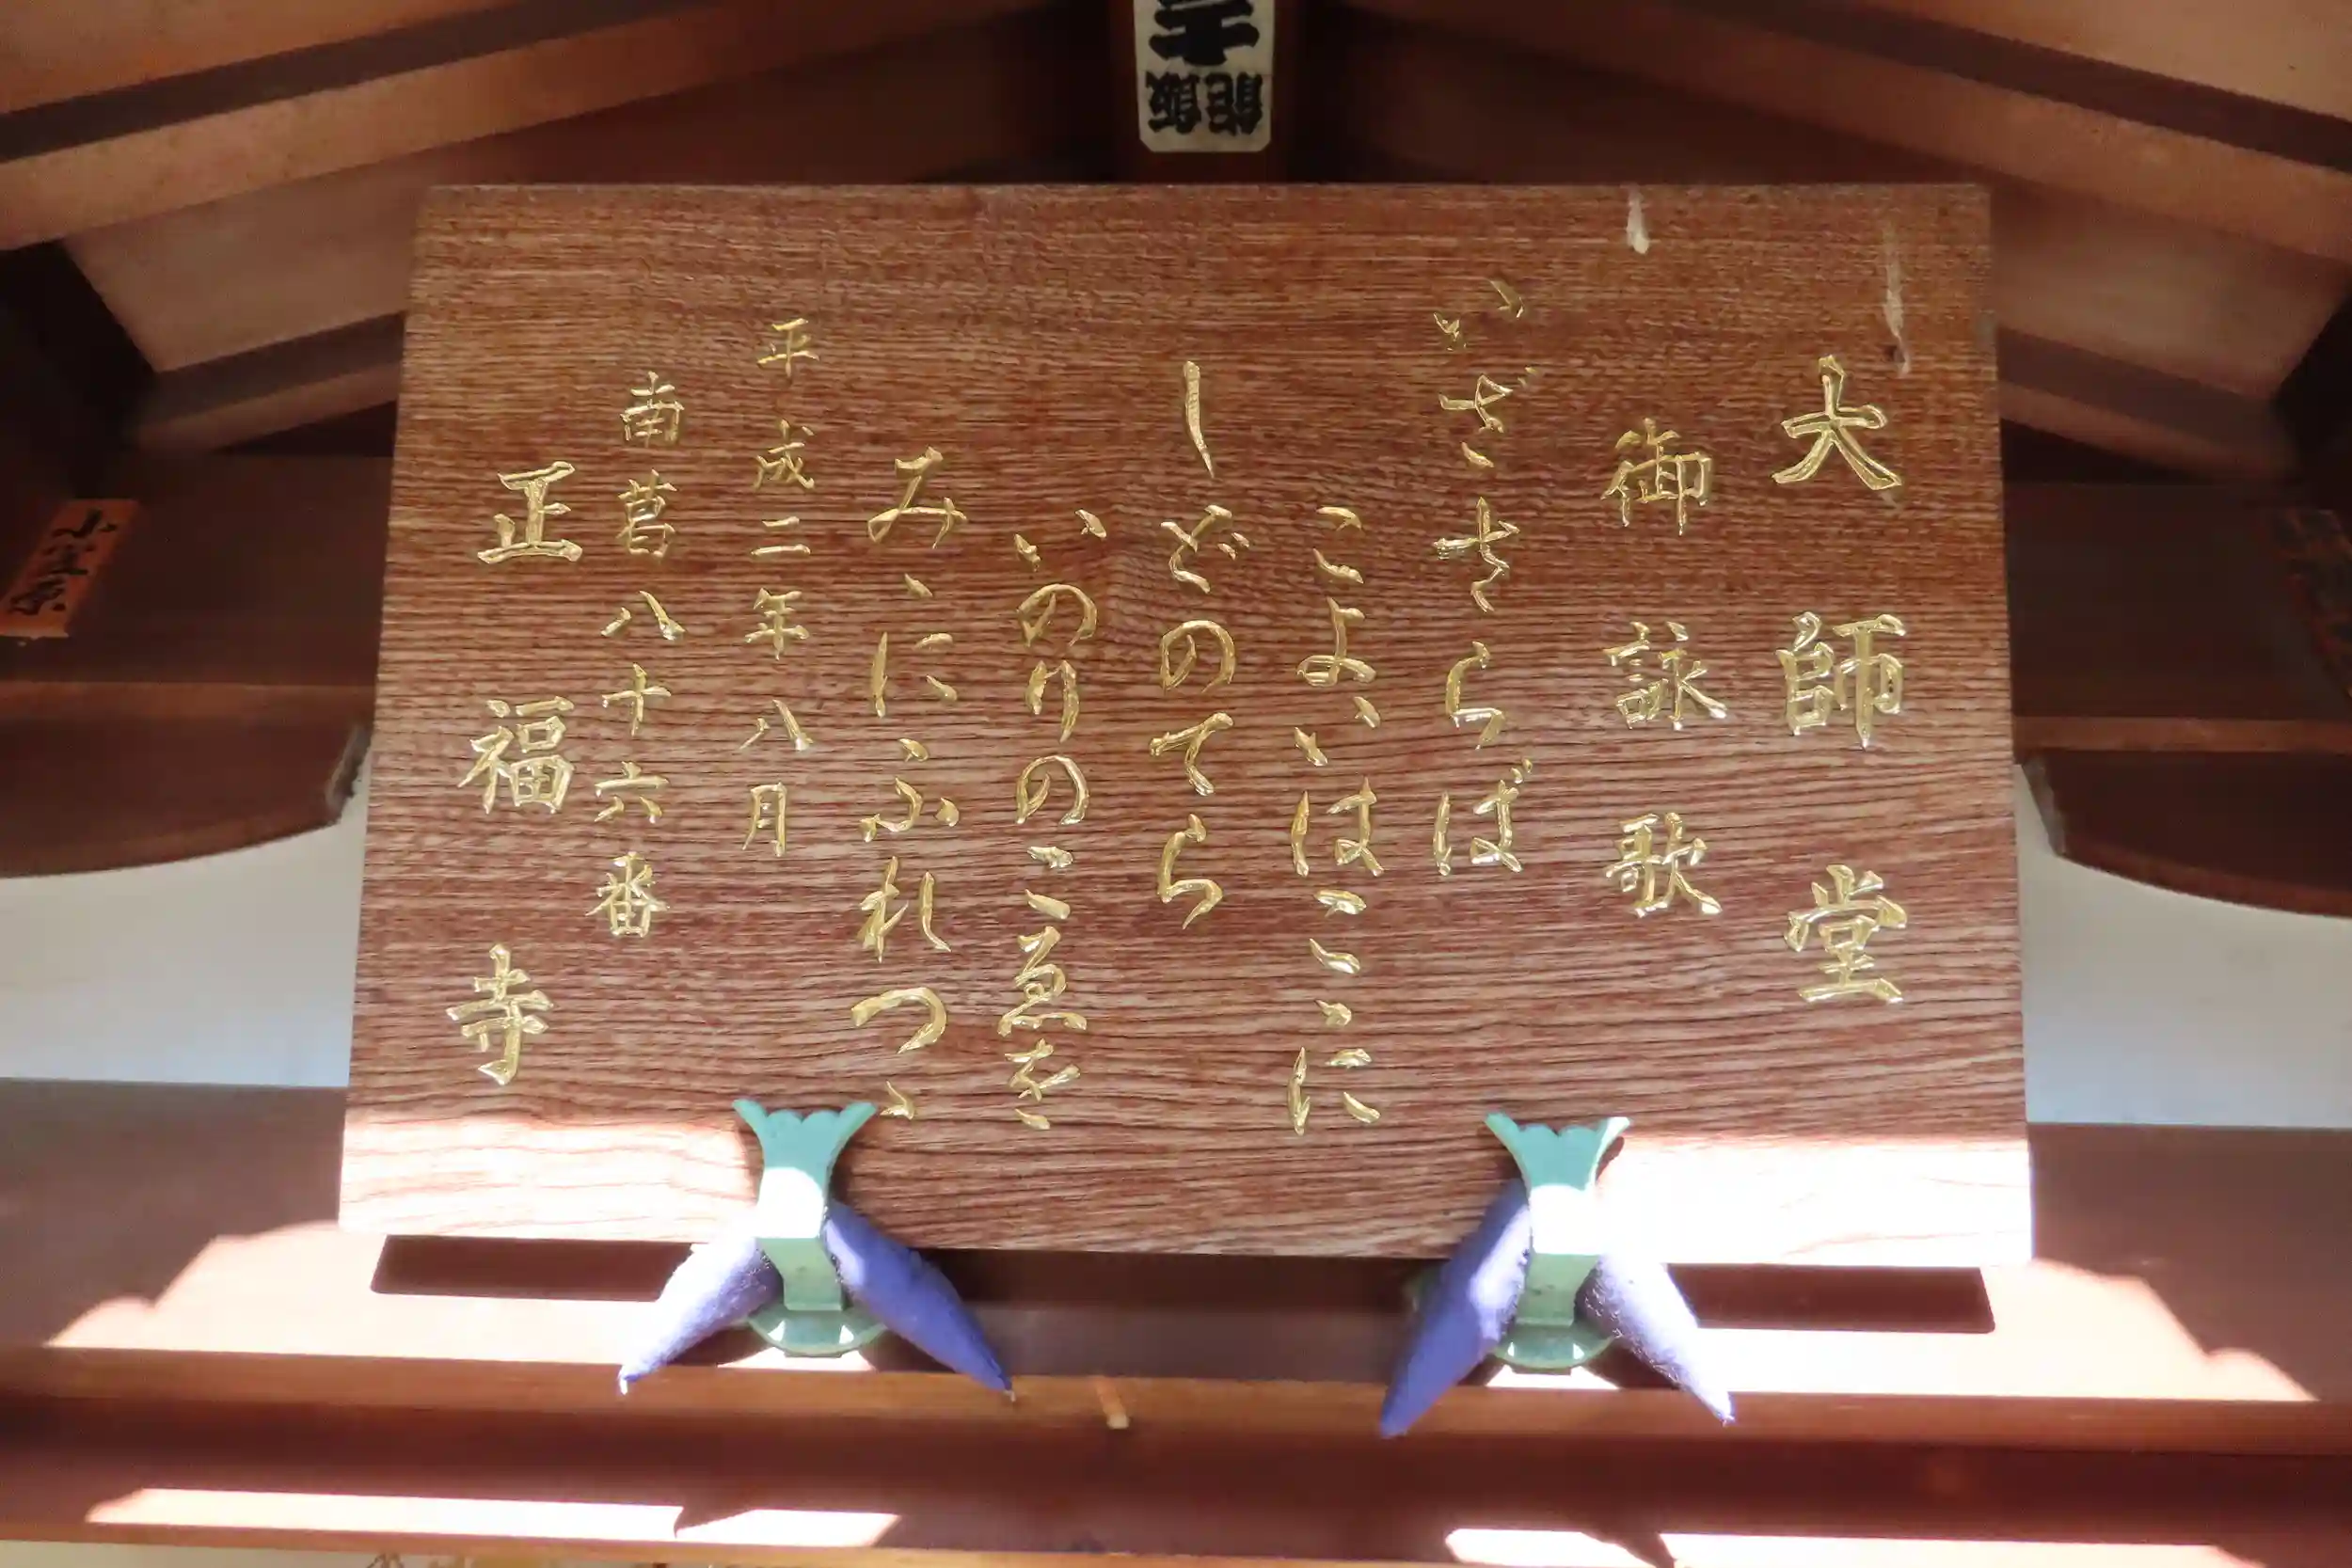 大師堂
御詠歌
いざさらば
こよいはここに
しどのてら
いのりのこゑを
みゝにふれつゝ
平成二年八月
南葛八十六番
正福寺
飯能
小笠原